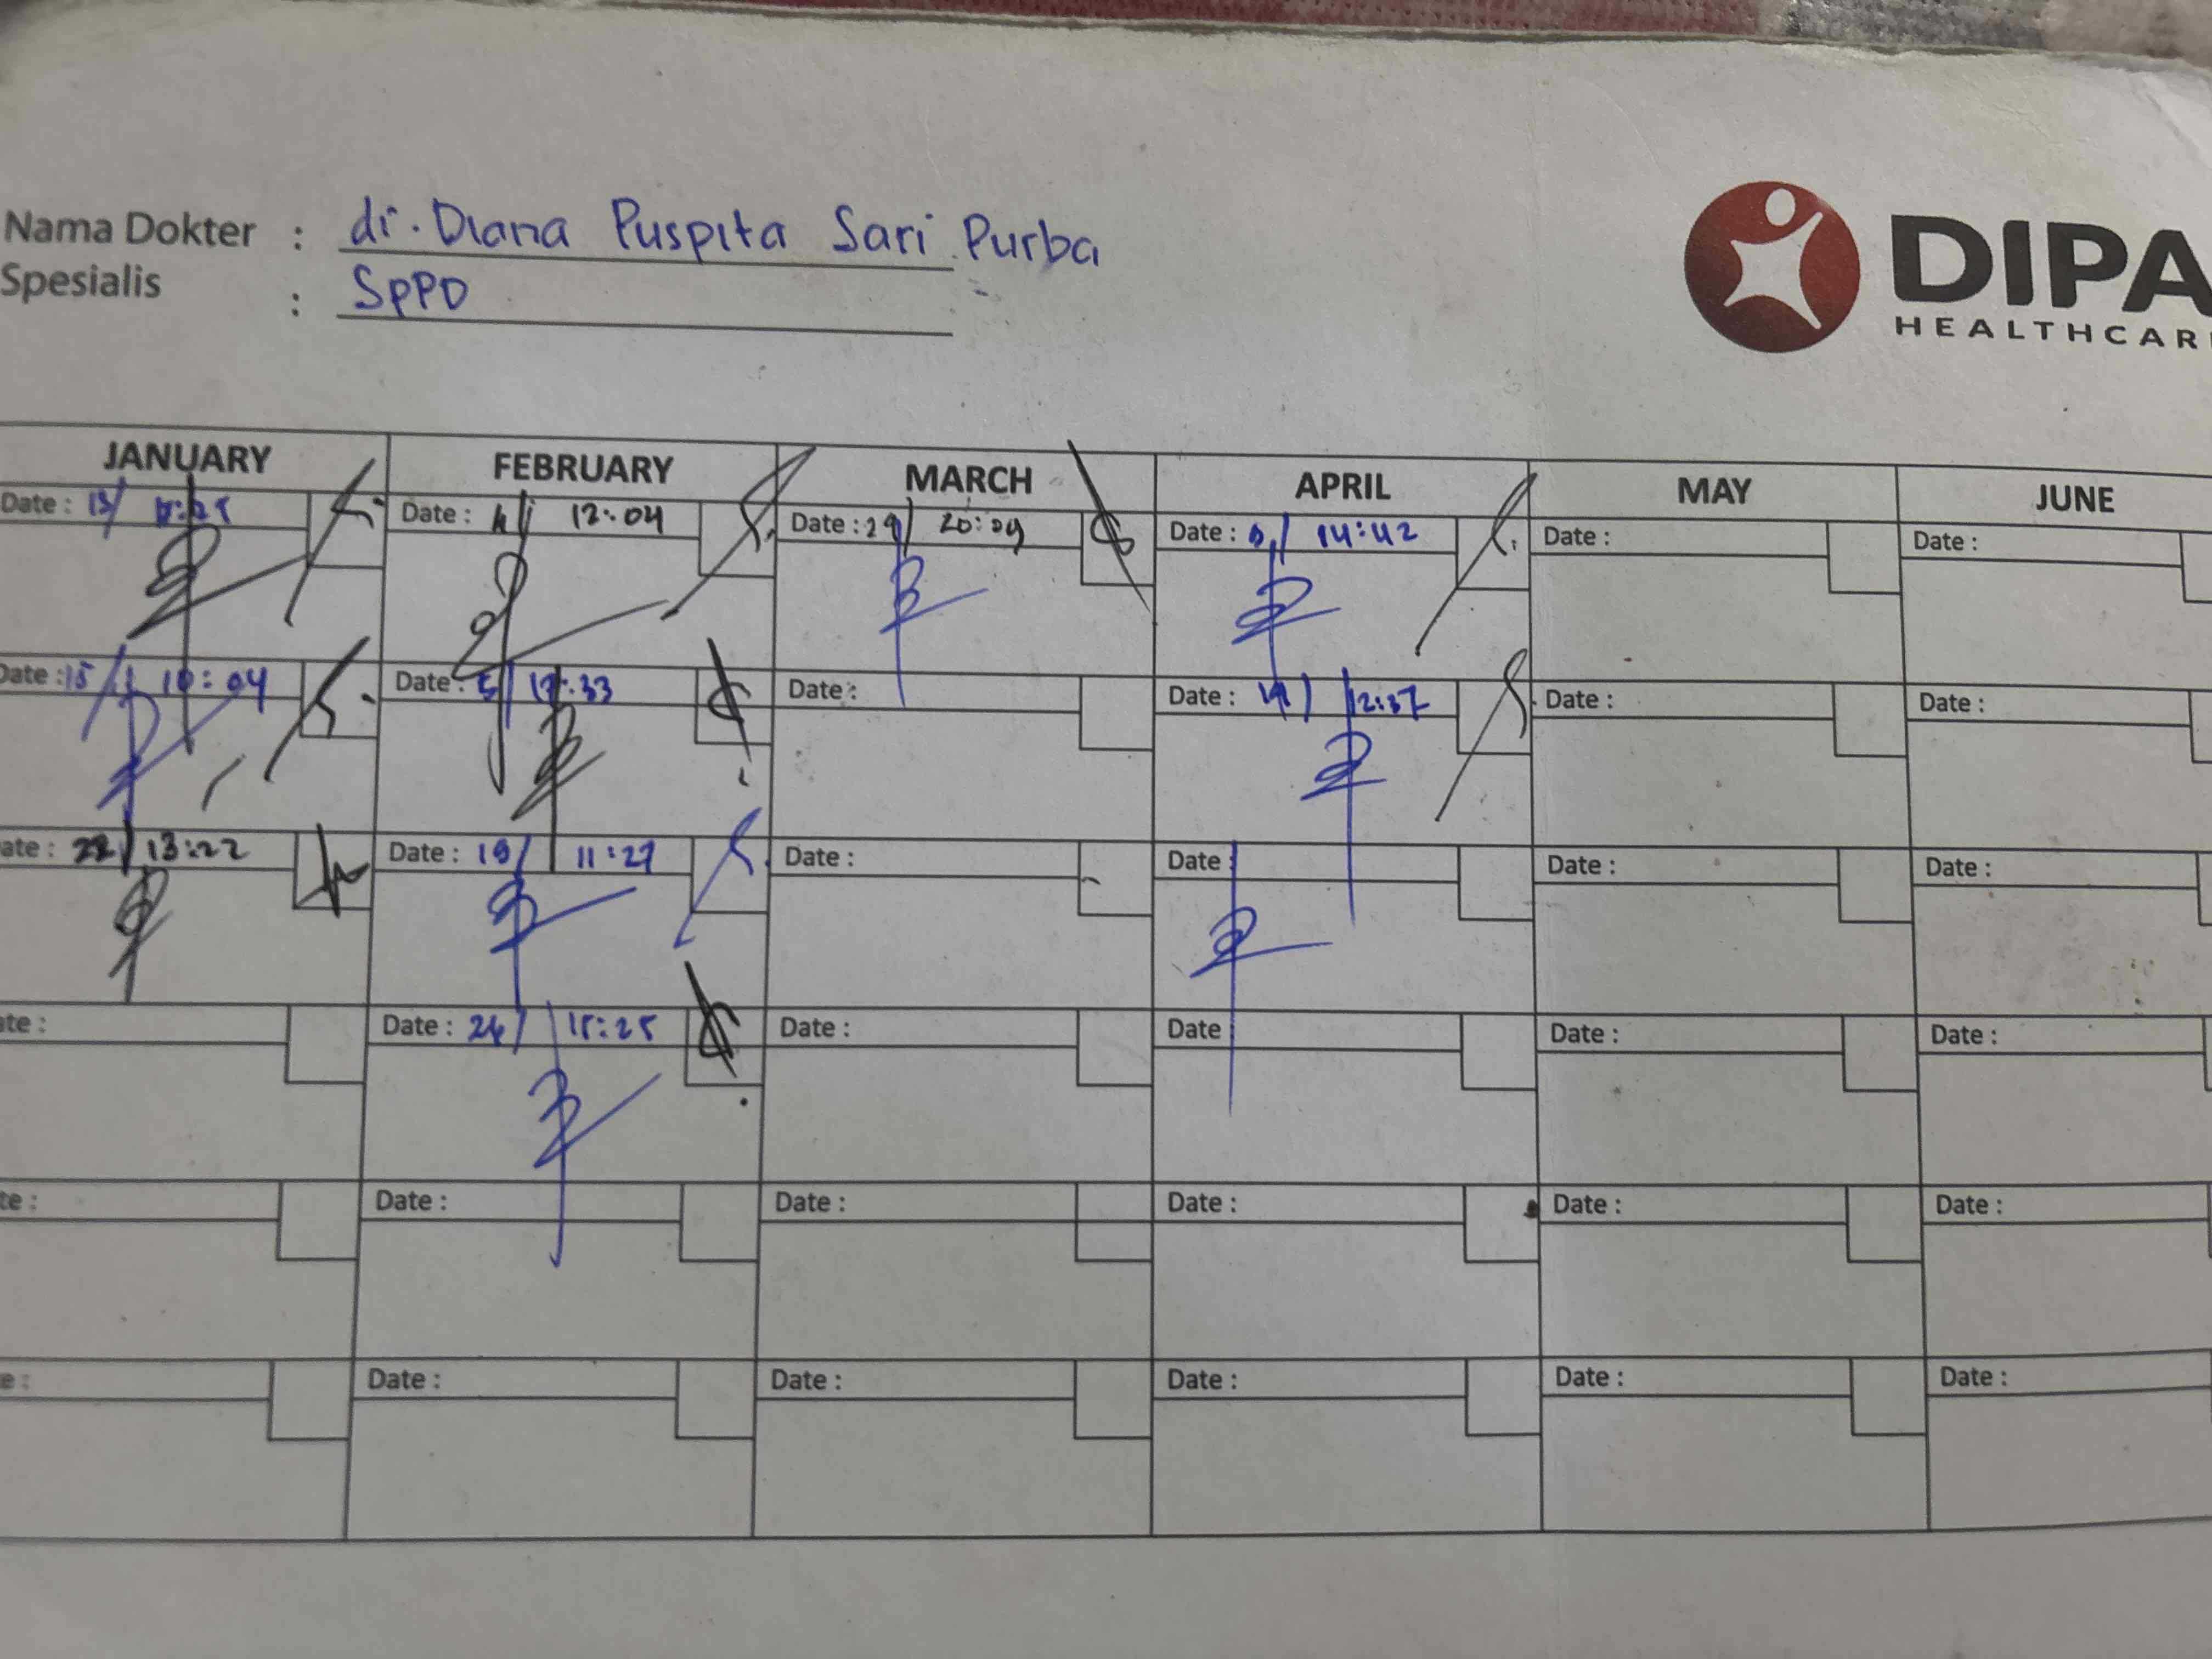 Nama Dokter : dr. Diana Puspita Sari Purba
Spesialis : SPPD
DIPA
HEALTHCAR
JANUARY FEBRUARY MARCH APRIL MAY JUNE
Date : 13/ Date : 12:04 Date : 29/ 20:09 Date : 14:42 Date : Date :
Date : 15/ 10:04 Date : 5/ 17:33 Date : Date : 12:37 Date : Date :
ate : 22/ 13:22 Date : 19/ 11:27 Date : Date : Date : Date :
ate : Date : 26/ 15:25 Date : Date Date : Date :
te : Date : Date : Date : Date : Date :
e : Date : Date : Date : Date : Date :